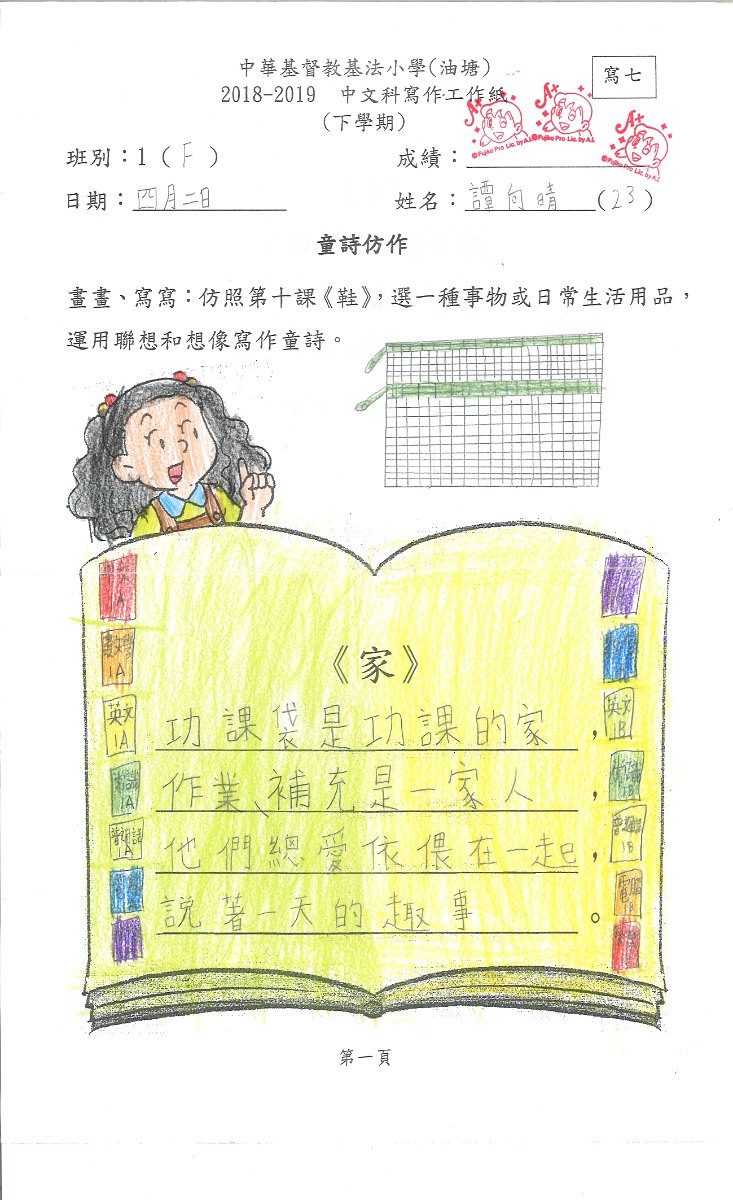 中華基督教基法小學(油塘)
寫七
2018-2019 中文科寫作工作紙
(下學期)
A+ A+ A+
©Fujiko Pro Lic. by A.I. ©Fujiko Pro Lic. by A.I. ©Fujiko Pro Lic. by A.I.
班別：1 ( F ) 成績：
日期：四月二日 姓名：譚向晴 (23)
童詩仿作
畫畫、寫寫：仿照第十課《鞋》，選一種事物或日常生活用品，
運用聯想和想像寫作童詩。
《家》
功課袋是功課的家，
作業、補充是一家人，
他們總愛依偎在一起，
說著一天的趣事。
A
數學 1A
英文 1A
1A
1A
英文 1B
1B
電腦 1B
第一頁